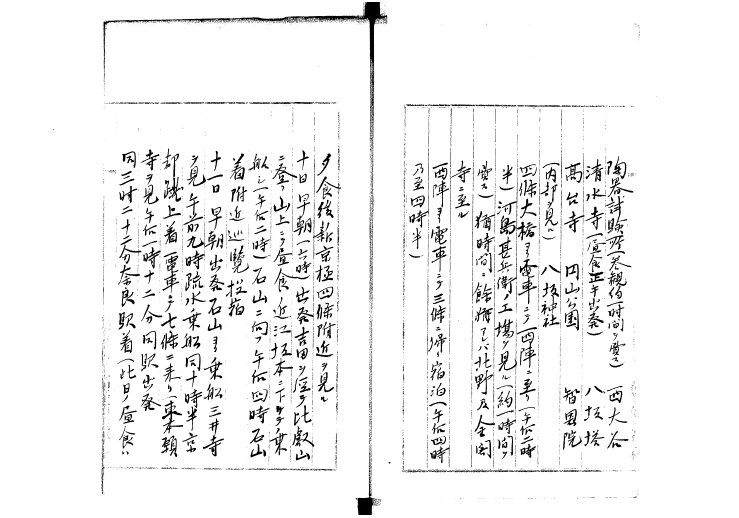 陶器試験所参観(約一時間ヲ費ス) 西大谷
清水寺(昼食正午出発) 八坂塔
高台寺 円山公園 智恩院
(内部ヲ見ル) 八坂神社
四條大橋ヨリ電車ニテ西陣ニ至ル(午后二時
半)河島甚兵衛ノ工場ヲ見ル(約一時間ヲ
費ス)猶時間ニ餘裕アレバ北野及金閣
寺ニ至ル
西陣ヨリ電車ニテ三條ニ帰リ宿泊(午后四時
乃至四時半)
夕食後新京極四條附近ヲ見ル
十日早朝(六時)出発吉田ヲ経テ比叡山
ニ登リ山上ニテ昼食近江坂本ニ下リ乗
船シ(午后二時)石山ニ向フ午后四時石山
着附近巡覧投宿
十一日早朝出発石山ヨリ乗船三井寺
ヲ見午前九時疏水乗船同十時半京
都蹴上着電車ニテ七條ニ来リ東本願
寺ヲ見午后一時十二分同駅出発
同三時二十二分奈良駅着(此日ノ昼食ハ